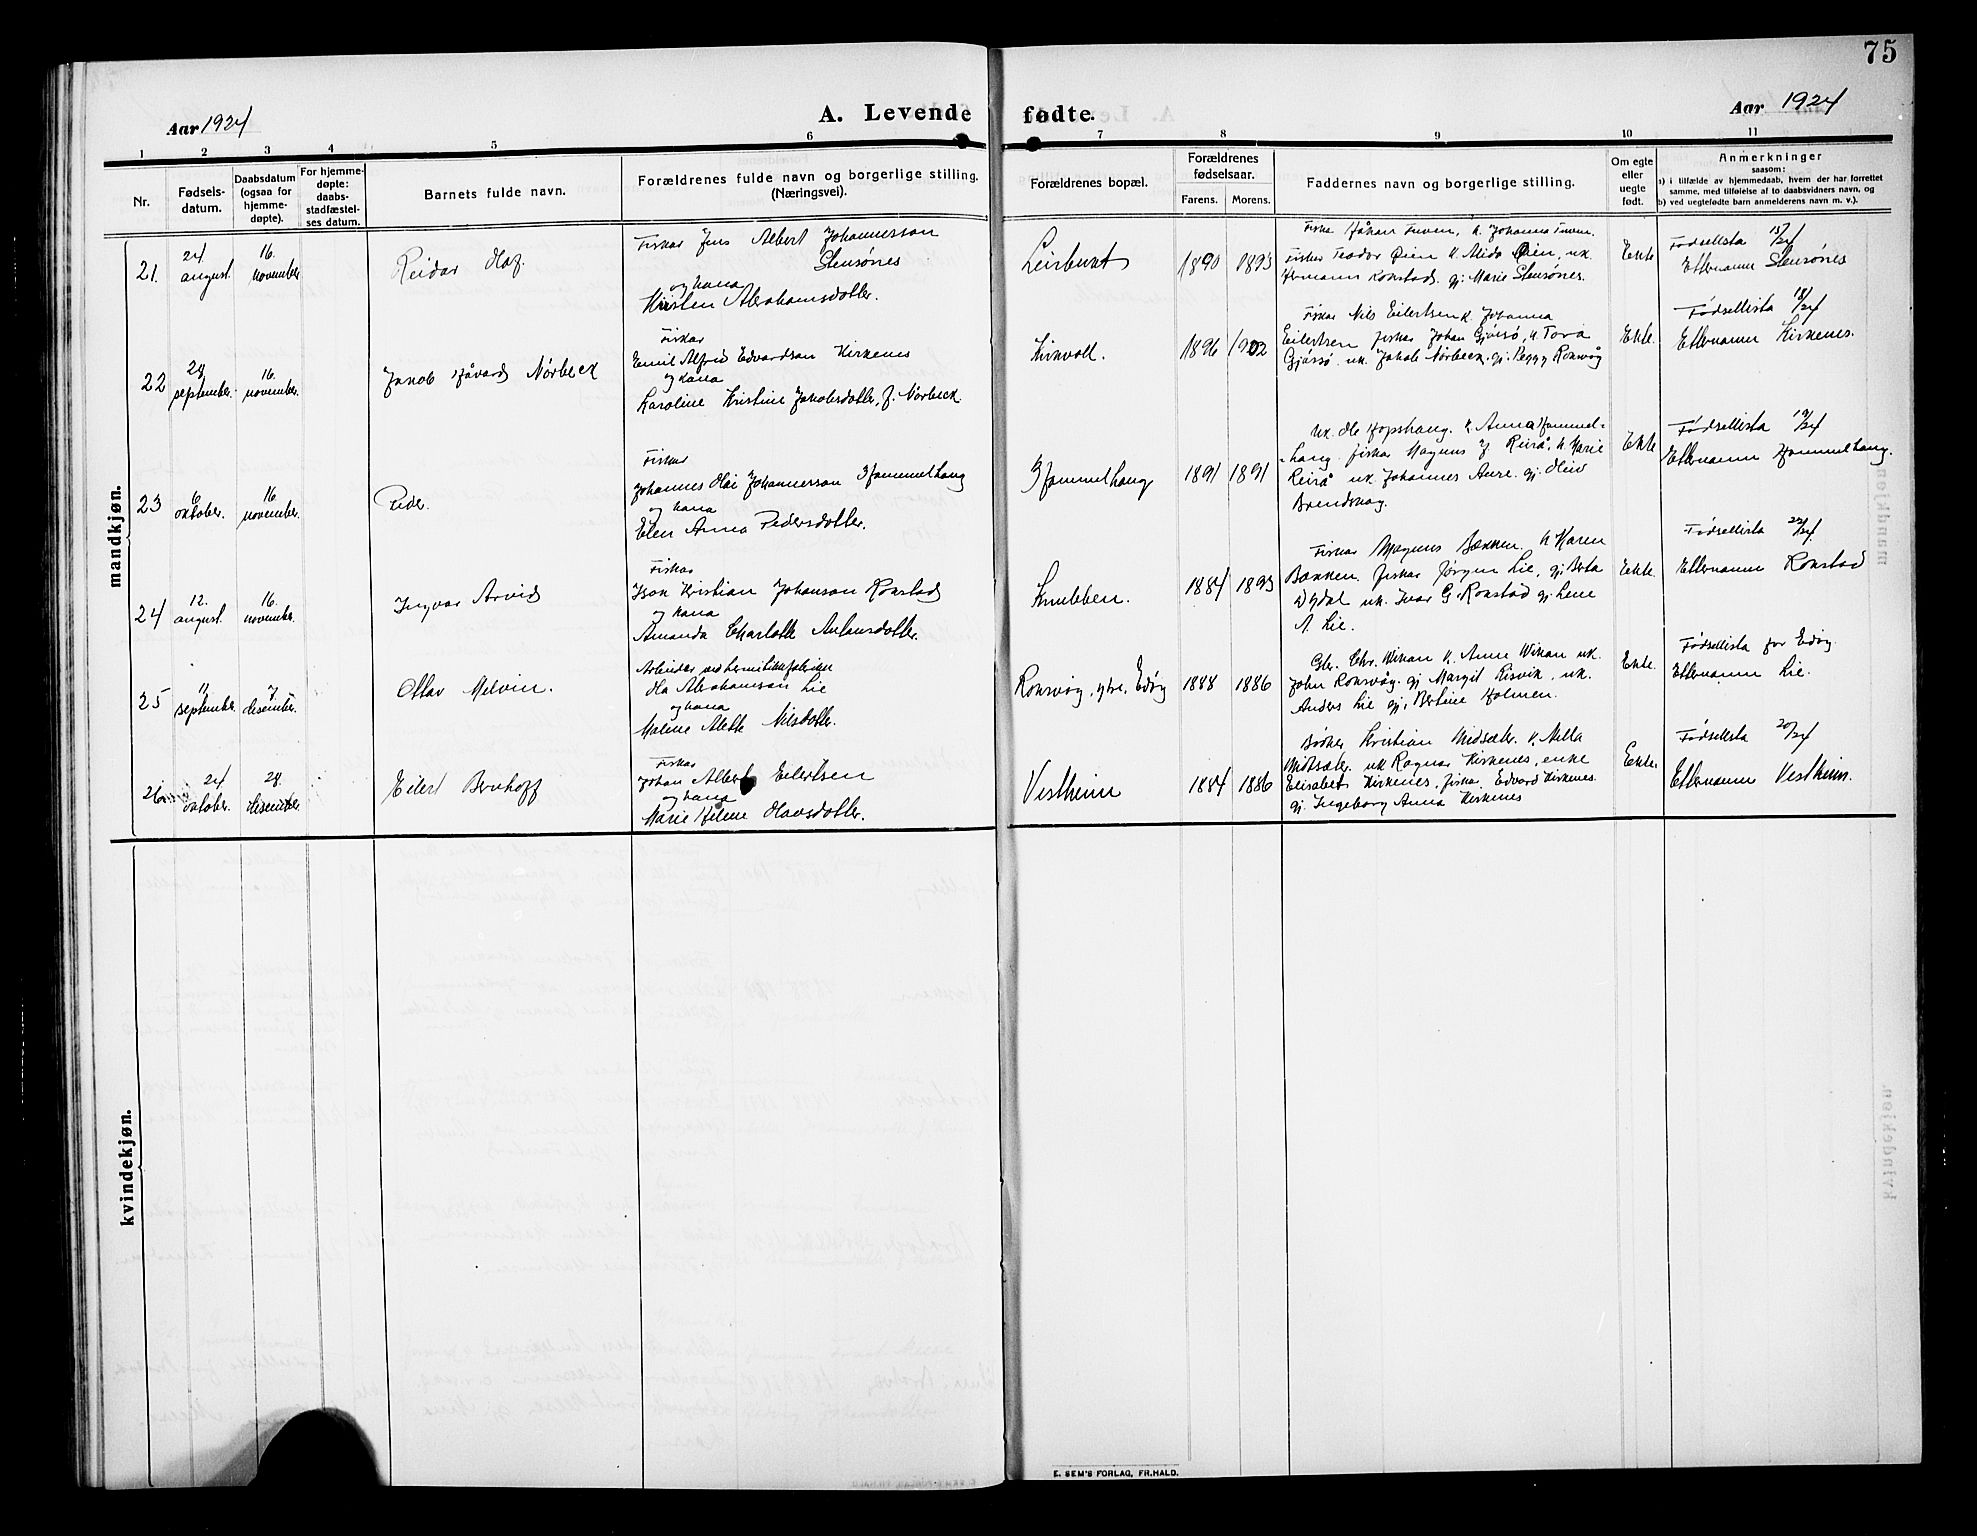 75
Aar 1924
A. Levende fødte.
Aar 1924
1 2 3 4 5 6 7 8 9 10 11
Nr.
Fødsels-
datum.
Daabsdatum
(ogsaa for
hjemme-
døpte).
For hjemme-
døpte:
daabs-
stadfæstel-
ses datum.
Barnets fulde navn.
Forældrenes fulde navn og borgerlige stilling.
(Næringsvei).
Forældrenes bopæl.
Forældrenes
fødselsaar.
Farens. Morens.
Faddernes navn og borgerlige stilling.
Om egte
eller
uegte
født.
Anmerkninger
saasom:
a) i tilfælde av hjemmedaab, hvem der har forrettet
samme, med tilføielse af to daabsvidners navn, og
b) ved uegtefødte barn anmelderens navn m. v.).
mandkjøn.
21.
24
august.
16.
november
Reidar Olaf.
Fiskar Jens Albert Johannesson
Stensønes
og kona
Kirsten Abrahamsdotter.
Leirbukt
1890 1893
Fiskar Håkon Tuven, k. Johanna Tuven.
Fiskar Teodor Øien k. Alida Øien, uk.
Hermann Ronstad. gj. Marie Stensønes.
Ekte
Fødsellista 15/24
Etternamn Stensønes
22
28
september.
16.
november.
Jakob Håvard Nørbeck
Fiskar
Emil Alfred Edvardson Kirkenes
og kona
Karoline Kristine Jakobsdotter, f. Nørbeck
Kirkvoll.
1896 1902
Fiskar Nils Eilertsen k. Johanna
Eilertsen fiskar Johan Gjøssø, k. Tora
Gjøssø. uk. Jakob Nørbeck. gj. Peggy Roksvåg
Ekte.
Fødsellista 18/24
Etternamn Kirkenes.
23
6
oktober.
16
november.
Peder.
Fiskar
Johannes Olai Johannesson Hammelhaug
og kona
Elen Anna Pedersdotter.
Hammelhaug
1891 1891
uk. Ole Hopshaug. k. Anna Hammel-
haug. fiskar Magnus J Reirå. k. Marie
Reirå uk. Johannes Aure. gj. Oline
Brendskag.
Ekte
Fødsellista 19/24
Etternamn Hammelhaug.
24
12.
august.
16.
november.
Ingvar Arvid
Fiskar
Isak Kristian Johanson Ronstad
og kona
Amanda Charlotte Antonsdotter.
Knubben.
1884 1893
Fiskar Magnus Bakken. k. Karen
Bakken. fiskar Jørgen Lie, gj. Berta
Dydal uk. Ivar G. Ronstad gj. Lene
A. Lie.
Ekte.
Fødsellista 22/24
Etternamn Ronstad
25
11
september.
7.
desember.
Ottar Melvin.
Arbeidar ved hermetikkfabrikken
Ola Abrahamson Lie
og kona
Malene Alette Nilsdotter.
Roksvåg, ytre, Edøy
1888 1886
Gbr. Chr. Wikan k. Anne Wikan uk.
John Roksvåg. gj Margit Risvik, uk.
Anders Lie gj. Bertine Holmen.
Ekte.
Fødsellista for Edøy.
Etternamn Lie.
26
24
oktober.
28.
desember
Eilert Bernhoff
Fiskar
Johan Albert Eilertsen
og kona
Marie Helene Olavsdotter.
Vestheim
1884 1886
Bødker Kristian Midsæter. k. Milla
Midtsæter. uk Ragnar Kirkenes, enke
Elisabet Kirkenes, fiskar Edvard Kirkenes
gj. Ingeborg Anna Kirkenes
Ekte.
Fødsellista 20/24
Etternamn Vestheim.
kvindekjøn.
E. SEM'S FORLAG, FR.HALD.